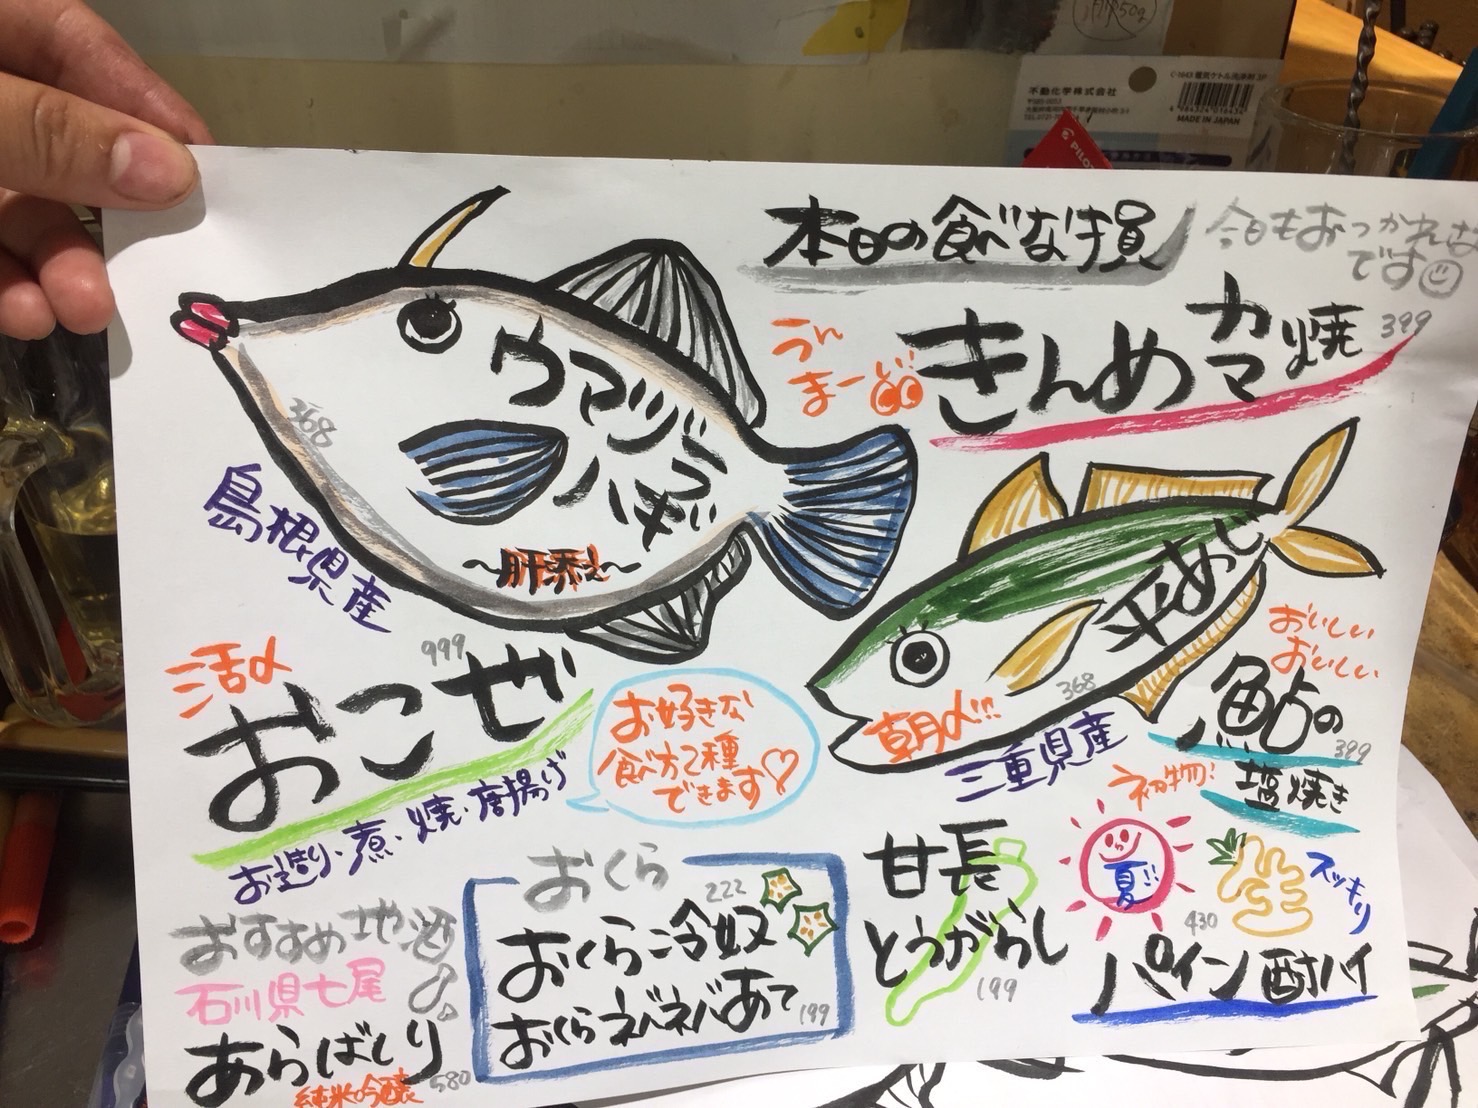 本日の食べな損
今日もおつかれさま
です
うん
まーい
きんめカマ焼
399
ウマヅラ
ハギ
368
～肝添え～
島根県産
平あじ
368
朝〆!!!
三重県産
おいしい
おいしい
鮎の
399
初物!
塩焼き
活〆
999
おこぜ
お造り・煮・焼・唐揚げ
お好きな
食べ方で2種
できます♡
おすすめ地酒
石川県七尾
あらばしり
純米吟醸
580
おくら
222
おくら冷奴
おくらネバネバあて
199
甘長
とうがらし
199
夏!!
スッキリ
430
パイン酎ハイ
不動化学株式会社
MADE IN JAPAN
PILOT